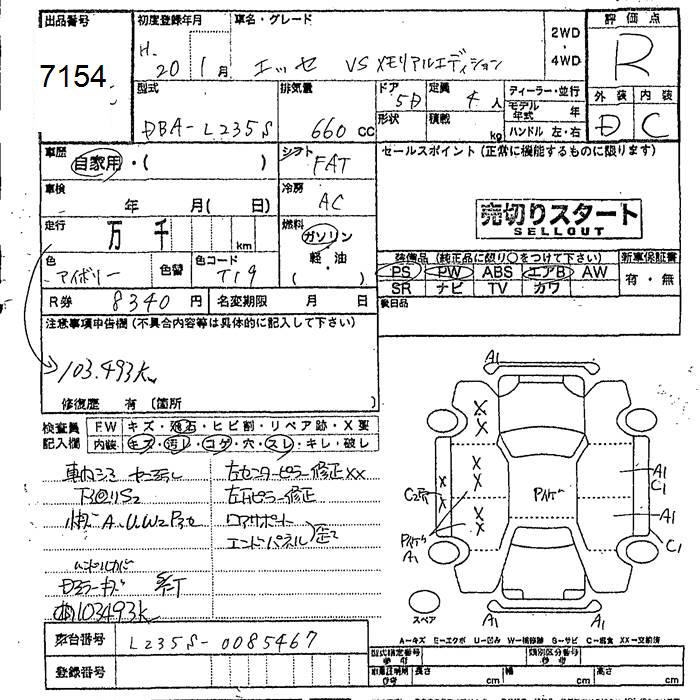 出品番号
7154
初度登録年月
H. 20 1月
車名・グレード
エッセ VSメモリアルエディション
2WD
・
4WD
評価点
R
外装 内装
D C
型式
DBA-L235S
排気量
660 cc
ドア 5D
定員 4人
形状
積載 kg
ディーラー・並行
モデル年式 年
ハンドル 左・右
車歴
自家用・( )
シフト
FAT
セールスポイント (正常に機能するものに限ります)
売切りスタート
SELLOUT
車検
年 月( 日)
冷房
AC
走行
万 千 km
燃料
ガソリン
軽・油
( )
色
アイボリー
色替
色コード
T19
装備品 (純正品に限り○をつけて下さい)
PS PW ABS エアB AW
SR ナビ TV カワ
新車保証書
有・無
R券 8340円
名変期限 月 日
後日品
注意事項申告欄 (不具合内容等は具体的に記入して下さい)
103.493K
修復歴 有 (箇所 )
検査員
記入欄
FW キズ・飛石・ヒビ割・リペア跡・X要
内装 キズ・汚レ・コゲ・穴・スレ・キレ・破レ
左センターピラー修正XX
左右ピラー修正
リアサポート
エンドパネル
歪
下回りS2
ハンドルカバー
Dミラーキズ
103493K
A1
A1
C1
A1
C1
A1
A1
A1
スペア
A-キズ E-エクボ U-凹み W-補修跡 S-サビ C-腐食 XX-交換済
車台番号
L235S-0085467
登録番号
型式指定番号
類別区分番号
長さ cm 幅 cm 高さ cm